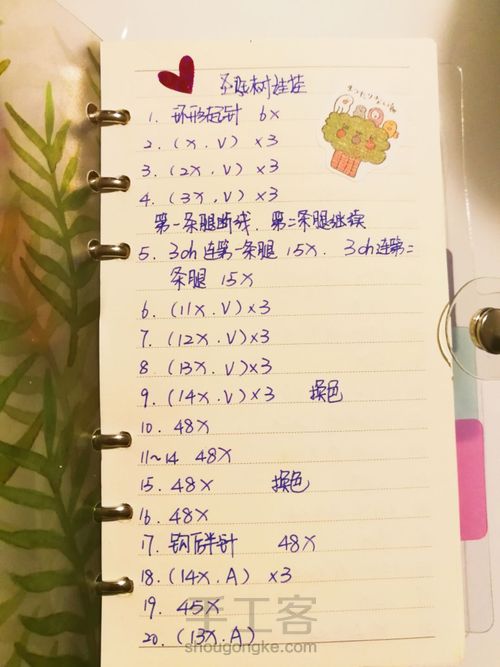 圣诞树娃娃
1. 环形起针 6X
2. (X.V)×3
3. (2X.V)×3
4. (3X.V)×3
第一条腿断线.第二条腿继续
5. 3ch连第一条腿 15X. 3ch连第二
条腿 15X
6. (11X.V)×3
7. (12X.V)×3
8. (13X.V)×3
9. (14X.V)×3 换色
10. 48X
11~14 48X
15. 48X 换色
16. 48X
17. 钩后半针 48X
18. (14X.A) ×3
19. 45X
20. (13X.A)
手工客
shougongke.com